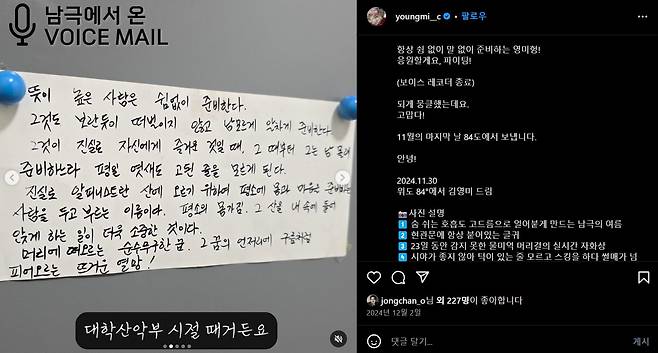 남극에서 온
VOICE MAIL
뜻이 높은 사람은 쉼없이 준비한다.
그것도 보란듯이 떠벌이지 않고 남모르게 악착게 준비한다
그것이 진실로 자신에게 즐거운 것일 때, 그 때부터 그는 남 몰래
준비하느라 평일 엿새도 고된 줄을 모르게 된다.
진실로 알피니스트란 산에 오르기 위하여 평소에 몸과 마음을 준비하는
사람을 두고 부르는 이름이다. 평소의 몸가짐. 그 산을 내 속에 들어
앉게 하는 일이 더욱 소중한 것이다.
머리에 떠오르는 순수무구한 꿈. 그 꿈의 언저리에 구름처럼
피어오르는 뜨거운 열망!
대학산악부 시절 때거든요
youngmi__c • 팔로우
항상 쉼 없이 말 없이 준비하는 영미형!
응원할게요, 파이팅!
(보이스 레코더 종료)
되게 뭉클했는데요.
고맙다!
11월의 마지막 날 84도에서 보냅니다.
안녕!
2024.11.30
위도 84°에서 김영미 드림
사진 설명
1 숨 쉬는 호흡도 고드름으로 얼어붙게 만드는 남극의 여름
2 현관문에 항상 붙어있는 글귀
3 23일 동안 감지 못한 물미역 머리결의 실시간 자화상
4 시야가 좋지 않아 턱이 있는 줄 모르고 스킹을 하다 썰매가 넘
jongchan_o님 외 227명이 좋아합니다
2024년 12월 2일
댓글 달기...
게시